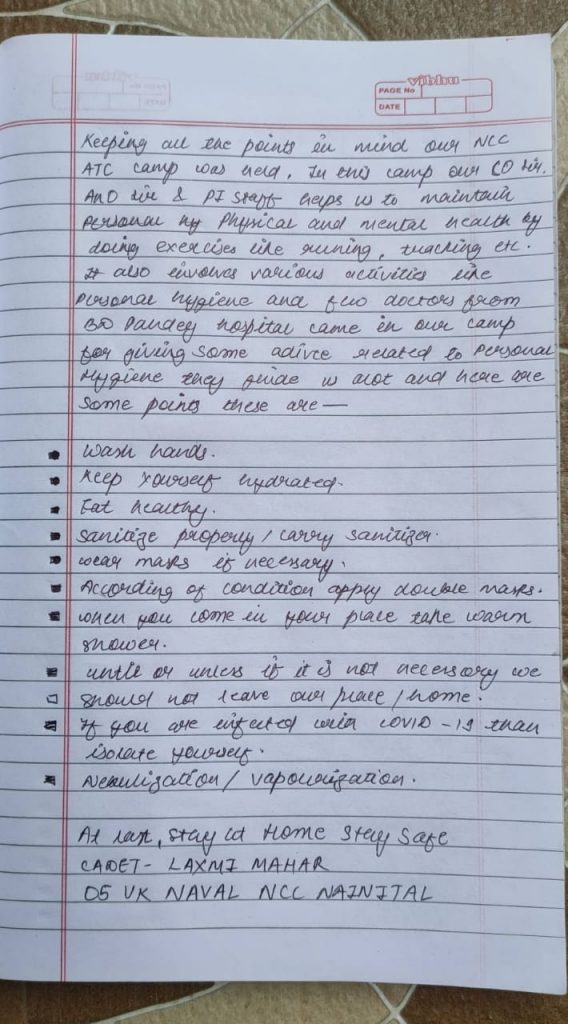 vibhu
PAGE No
DATE
Keeping all the points in mind our NCC
ATC camp was held. In this camp our CO sir.
ANO sir & PI staff helps us to maintain
personal hy Physical and mental health by
doing exercises like running, tracking etc.
It also involves various activities like
Personal hygiene and few doctors from
BD Pandey hospital came in our camp
for giving some advice related to Personal
Hygiene they guide us alot and here are
some points these are —
Wash hands.
Keep Yourself hydrated.
Eat healthy.
Sanitize properly / carry sanitizer.
wear masks if necessary.
According of condition apply double masks.
when you come in your place take warm
shower.
until or unless if it is not necessary we
should not leave our place / home.
If you are infected with COVID-19 than
isolate yourself.
Nebulization / vapourization.
At last, stay at Home Stay Safe
CADET- LAXMI MAHAR
05 UK NAVAL NCC NAINITAL